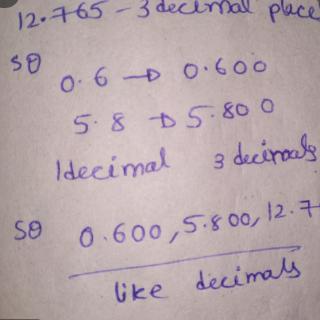 12.765 - 3 decimal place
so
0.6 → 0.600
5.8 → 5.800
1decimal 3 decimals
so 0.600, 5.800, 12.7
like decimals